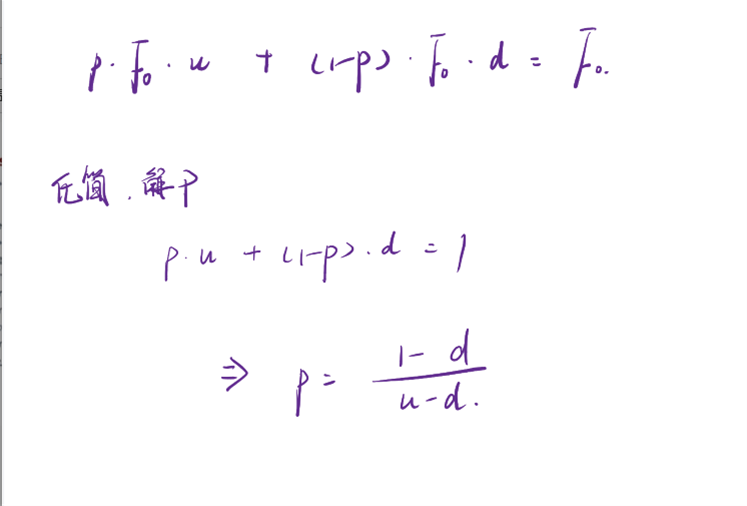 p · F₀ · u + (1-p) · F₀ · d = F₀.
化简. 解P
p · u + (1-p) · d = 1
⇒ p = (1-d)/(u-d).